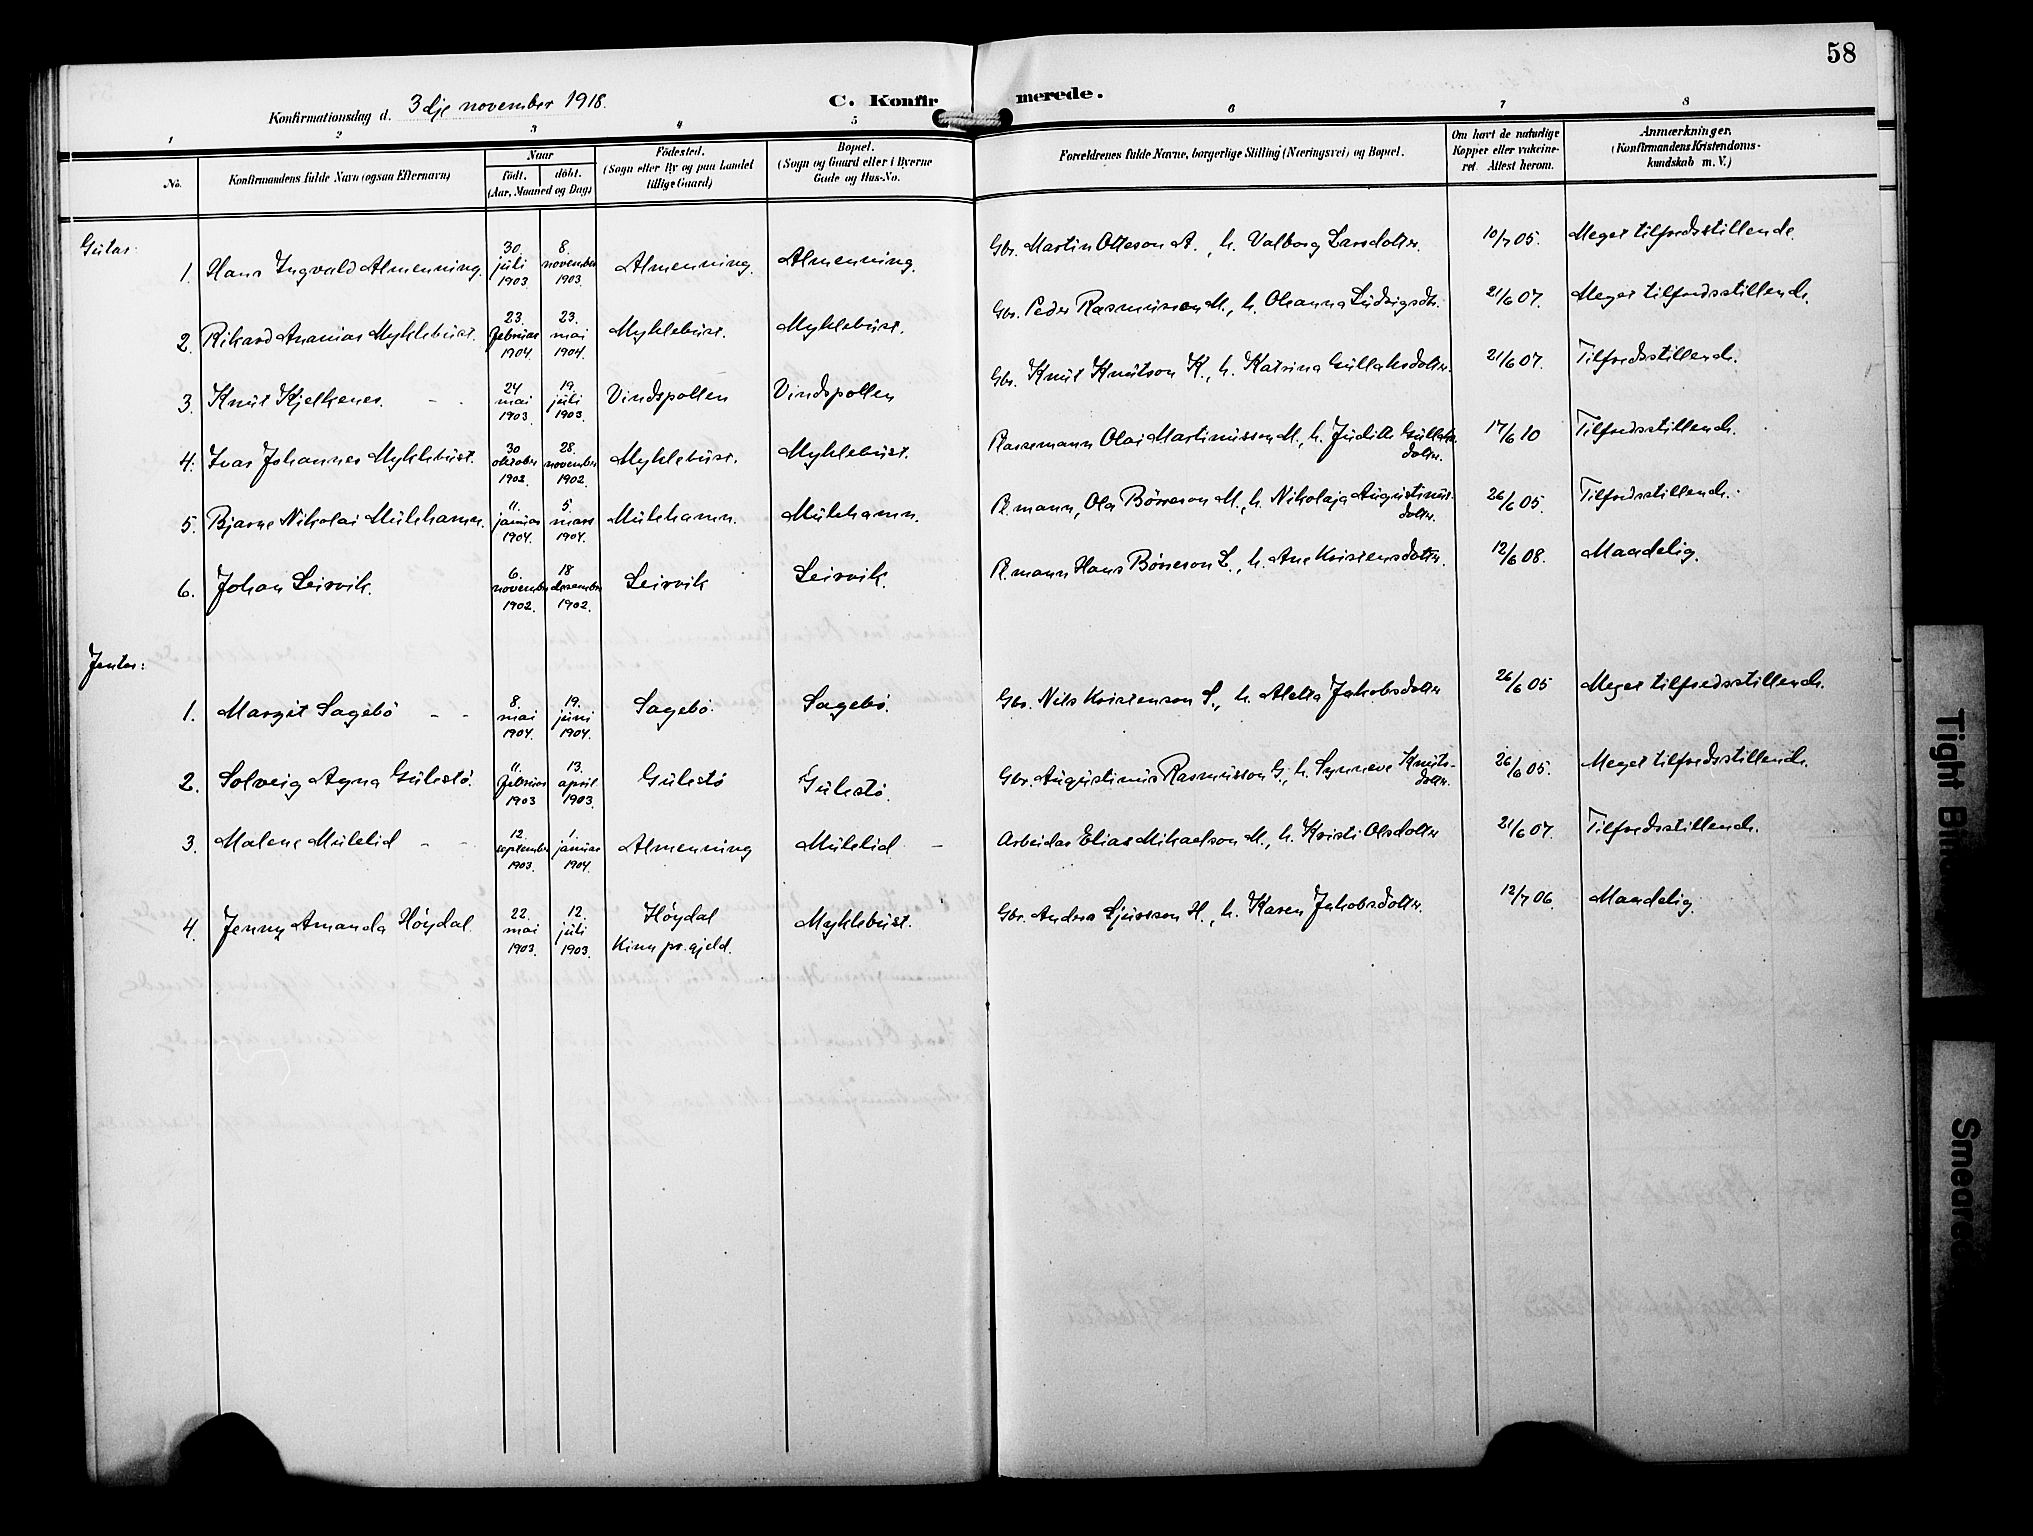 58
Konfirmationsdag d. 3dje november 1918.
C. Konfirmerede.
1 2 3 4 5 6 7 8
No.
Konfirmandens fulde Navn (ogsaa Efternavn)
Naar
født. døbt.
(Aar, Maaned og Dag)
Fødested.
(Sogn eller By og paa Landet
tillige Gaard)
Bopæl.
(Sogn og Gaard eller i Byerne
Gade og Hus-No.
Forældrenes fulde Navne, borgerlige Stilling (Næringsvei) og Bopæl.
Om havt de naturlige
Kopper eller vakcine-
ret Attest herom.
Anmærkninger.
(Konfirmandens Kristendoms-
kundskab m. V.)
Gutar:
1. Hans Ingvald Almenning. 30. juli 1903 8. november 1903. Almenning. Almenning. Gbr. Martin Otteson A., h. Valborg Larsdotter. 10/7 05. Meget tilfredsstillende.
2. Rikard Ananias Myklebust. 23. februar 1904 23. mai 1904. Myklebust. Myklebust. Gbr. Peder Rasmusson M., h. Oleanna Ludvigsdtr. 21/6 07. Meget tilfredsstillende.
3. Knut Kjelkenes. - - 24 mai 1903 19. juli 1903. Vindspollen Vindspollen Gbr. Knut Knutson K., h. Katrina Gullaksdotter. 21/6 07. Tilfredsstillende.
4. Ivar Johannes Myklebust. 30 oktober 1902. 28. november 1902. Myklebust. Myklebust. Plassemann Olai Martinusson M., h. Judith Gullaks dotter. 17/6 10 Tilfredsstillende.
5. Bjarne Nikolai Mulehamn. 11. januar 1904. 5. mars 1904. Mulehamn. Mulehamn. Pl.mann, Ola Børreson M., h. Nikolaja Augustinus- dotter. 26/6 05. Tilfredsstillende.
6. Johan Leirvik. 6. november 1902. 18 desember 1902. Leirvik Leirvik. Pl.mann Hans Børreson L., h. Ane Kristensdotter. 12/6 08. Maadelig.
Jentar:
1. Margit Sagebø - - 8. mai 1904. 19. juni 1904. Sagebø. Sagebø. Gbr. Nils Kristenson S., h. Aletta Jakobsdotter 26/6 05 Meget tilfredsstillende.
2. Solveig Agna Gulestø. 11. februar 1903 13. april 1903. Gulestø Gulestø. Gbr. Augustinus Rasmusson G., h. Synneve Knuts- dotter. 26/6 05. Meget tilfredsstillende.
3. Malene Mulelid - - 12. september 1903. 1. januar 1904. Almenning Mulelid - Arbeidar Elias Mikaelson M., h. Kristi Olsdotter 21/6 07. Tilfredsstillende.
4. Jenny Amanda Høydal 22. mai 1903. 12. juli 1903. Høydal Kinn pr.gjeld. Myklebust. Gbr. Anders Sjursson H., h. Karen Jakobsdotter. 12/7 06 Maadelig.
Smeared